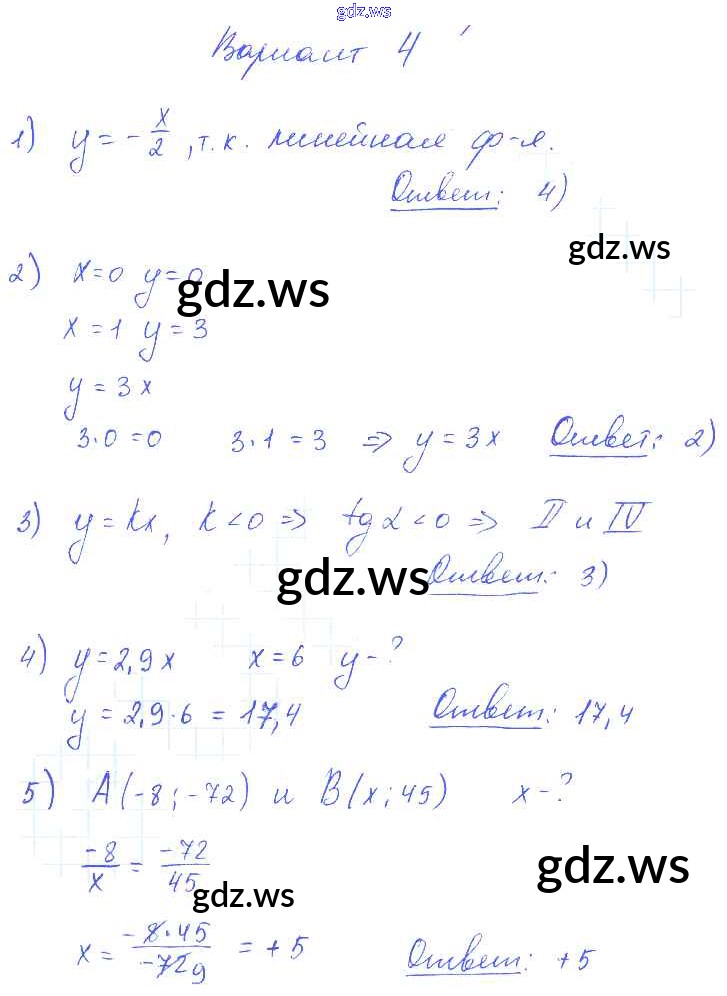 gdz.ws
Вариант 4
1) y = -x/2, т.к. линейная ф-я.
Ответ: 4)
gdz.ws
2) x=0 y=0
gdz.ws
x=1 y=3
y=3x
3·0=0 3·1=3 => y=3x Ответ: 2)
3) y=kx, k<0 => tgα<0 => II и IV
gdz.ws
Ответ: 3)
4) y=2,9x x=6 y-?
y=2,9·6=17,4 Ответ: 17,4
5) A(-8;-72) и B(x;45) x-?
-8/x = -72/45
gdz.ws
gdz.ws
x = -8·45/-72 9 = +5 Ответ: +5